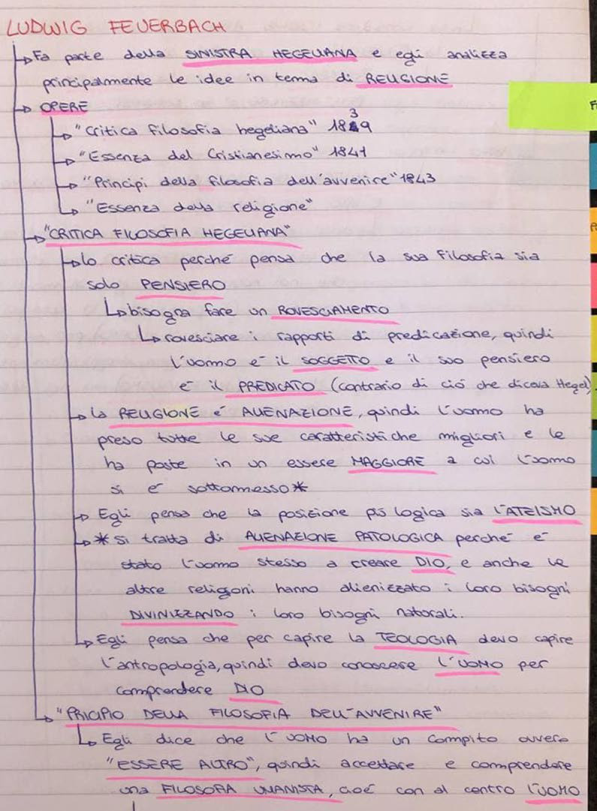 LUDWIG FEUERBACH
Fa parte della SINISTRA HEGELIANA e egli analizza
principalmente le idee in tema di RELIGIONE
OPERE
"Critica filosofia hegeliana" 1839
"Essenza del Cristianesimo" 1841
"Principi della filosofia dell'avvenire" 1843
"Essenza della religione"
"CRITICA FILOSOFIA HEGELIANA"
lo critica perché pensa che la sua filosofia sia
solo PENSIERO
bisogna fare un ROVESCIAMENTO
rovesciare i rapporti di predicazione, quindi
l'uomo è il SOGGETTO e il suo pensiero
è il PREDICATO (contrario di ciò che diceva Hegel).
la RELIGIONE è ALIENAZIONE, quindi l'uomo ha
preso tutte le sue caratteristiche migliori e le
ha poste in un essere MAGGIORE a cui l'uomo
si è sottomesso*
Egli pensa che la posizione più logica sia L'ATEISMO
* si tratta di ALIENAZIONE PATOLOGICA perché è
stato l'uomo stesso a creare DIO, e anche le
altre religioni hanno alienizzato i loro bisogni
DIVINIZZANDO i loro bisogni naturali.
Egli pensa che per capire la TEOLOGIA devo capire
l'antropologia, quindi devo conoscere L'UOMO per
comprendere DIO
"PRICIPIO DELLA FILOSOFIA DELL'AVVENIRE"
Egli dice che l'UOMO ha un compito ovvero
"ESSERE ALTRO", quindi accettare e comprendere
una FILOSOFIA UMANISTA, cioè con al centro L'UOMO